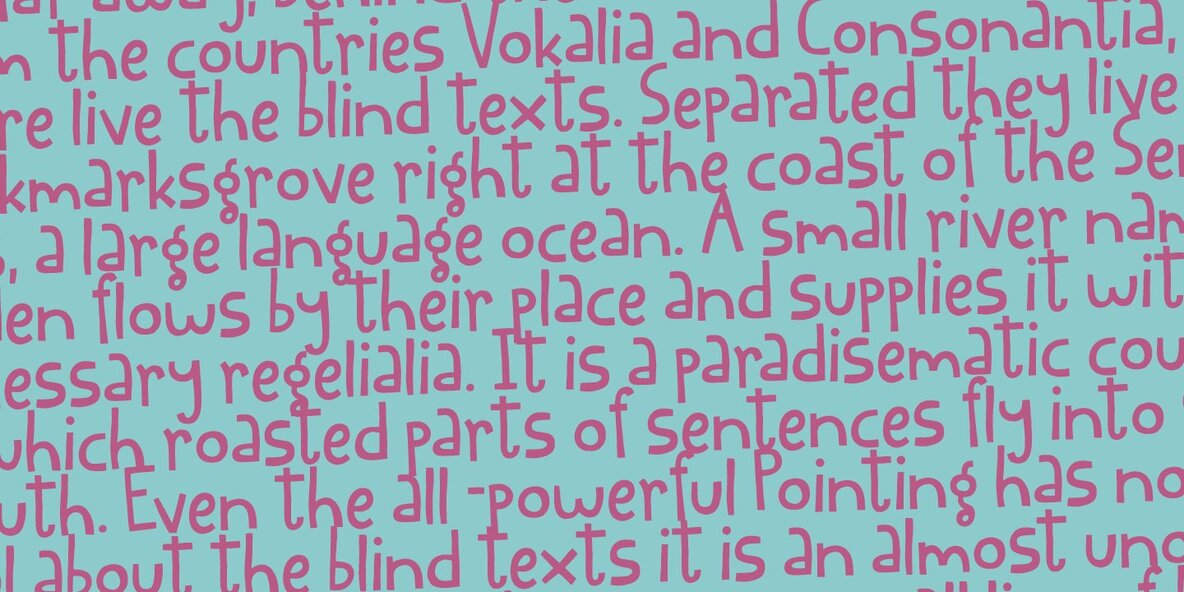 far away, behind the
m the countries Vokalia and Consonantia,
re live the blind texts. Separated they live
kmarksgrove right at the coast of the Sem
, a large language ocean. A small river nam
den flows by their place and supplies it wit
essary regelialia. It is a paradisematic cou
which roasted parts of sentences fly into
uth. Even the all -powerful Pointing has no
l about the blind texts it is an almost uno